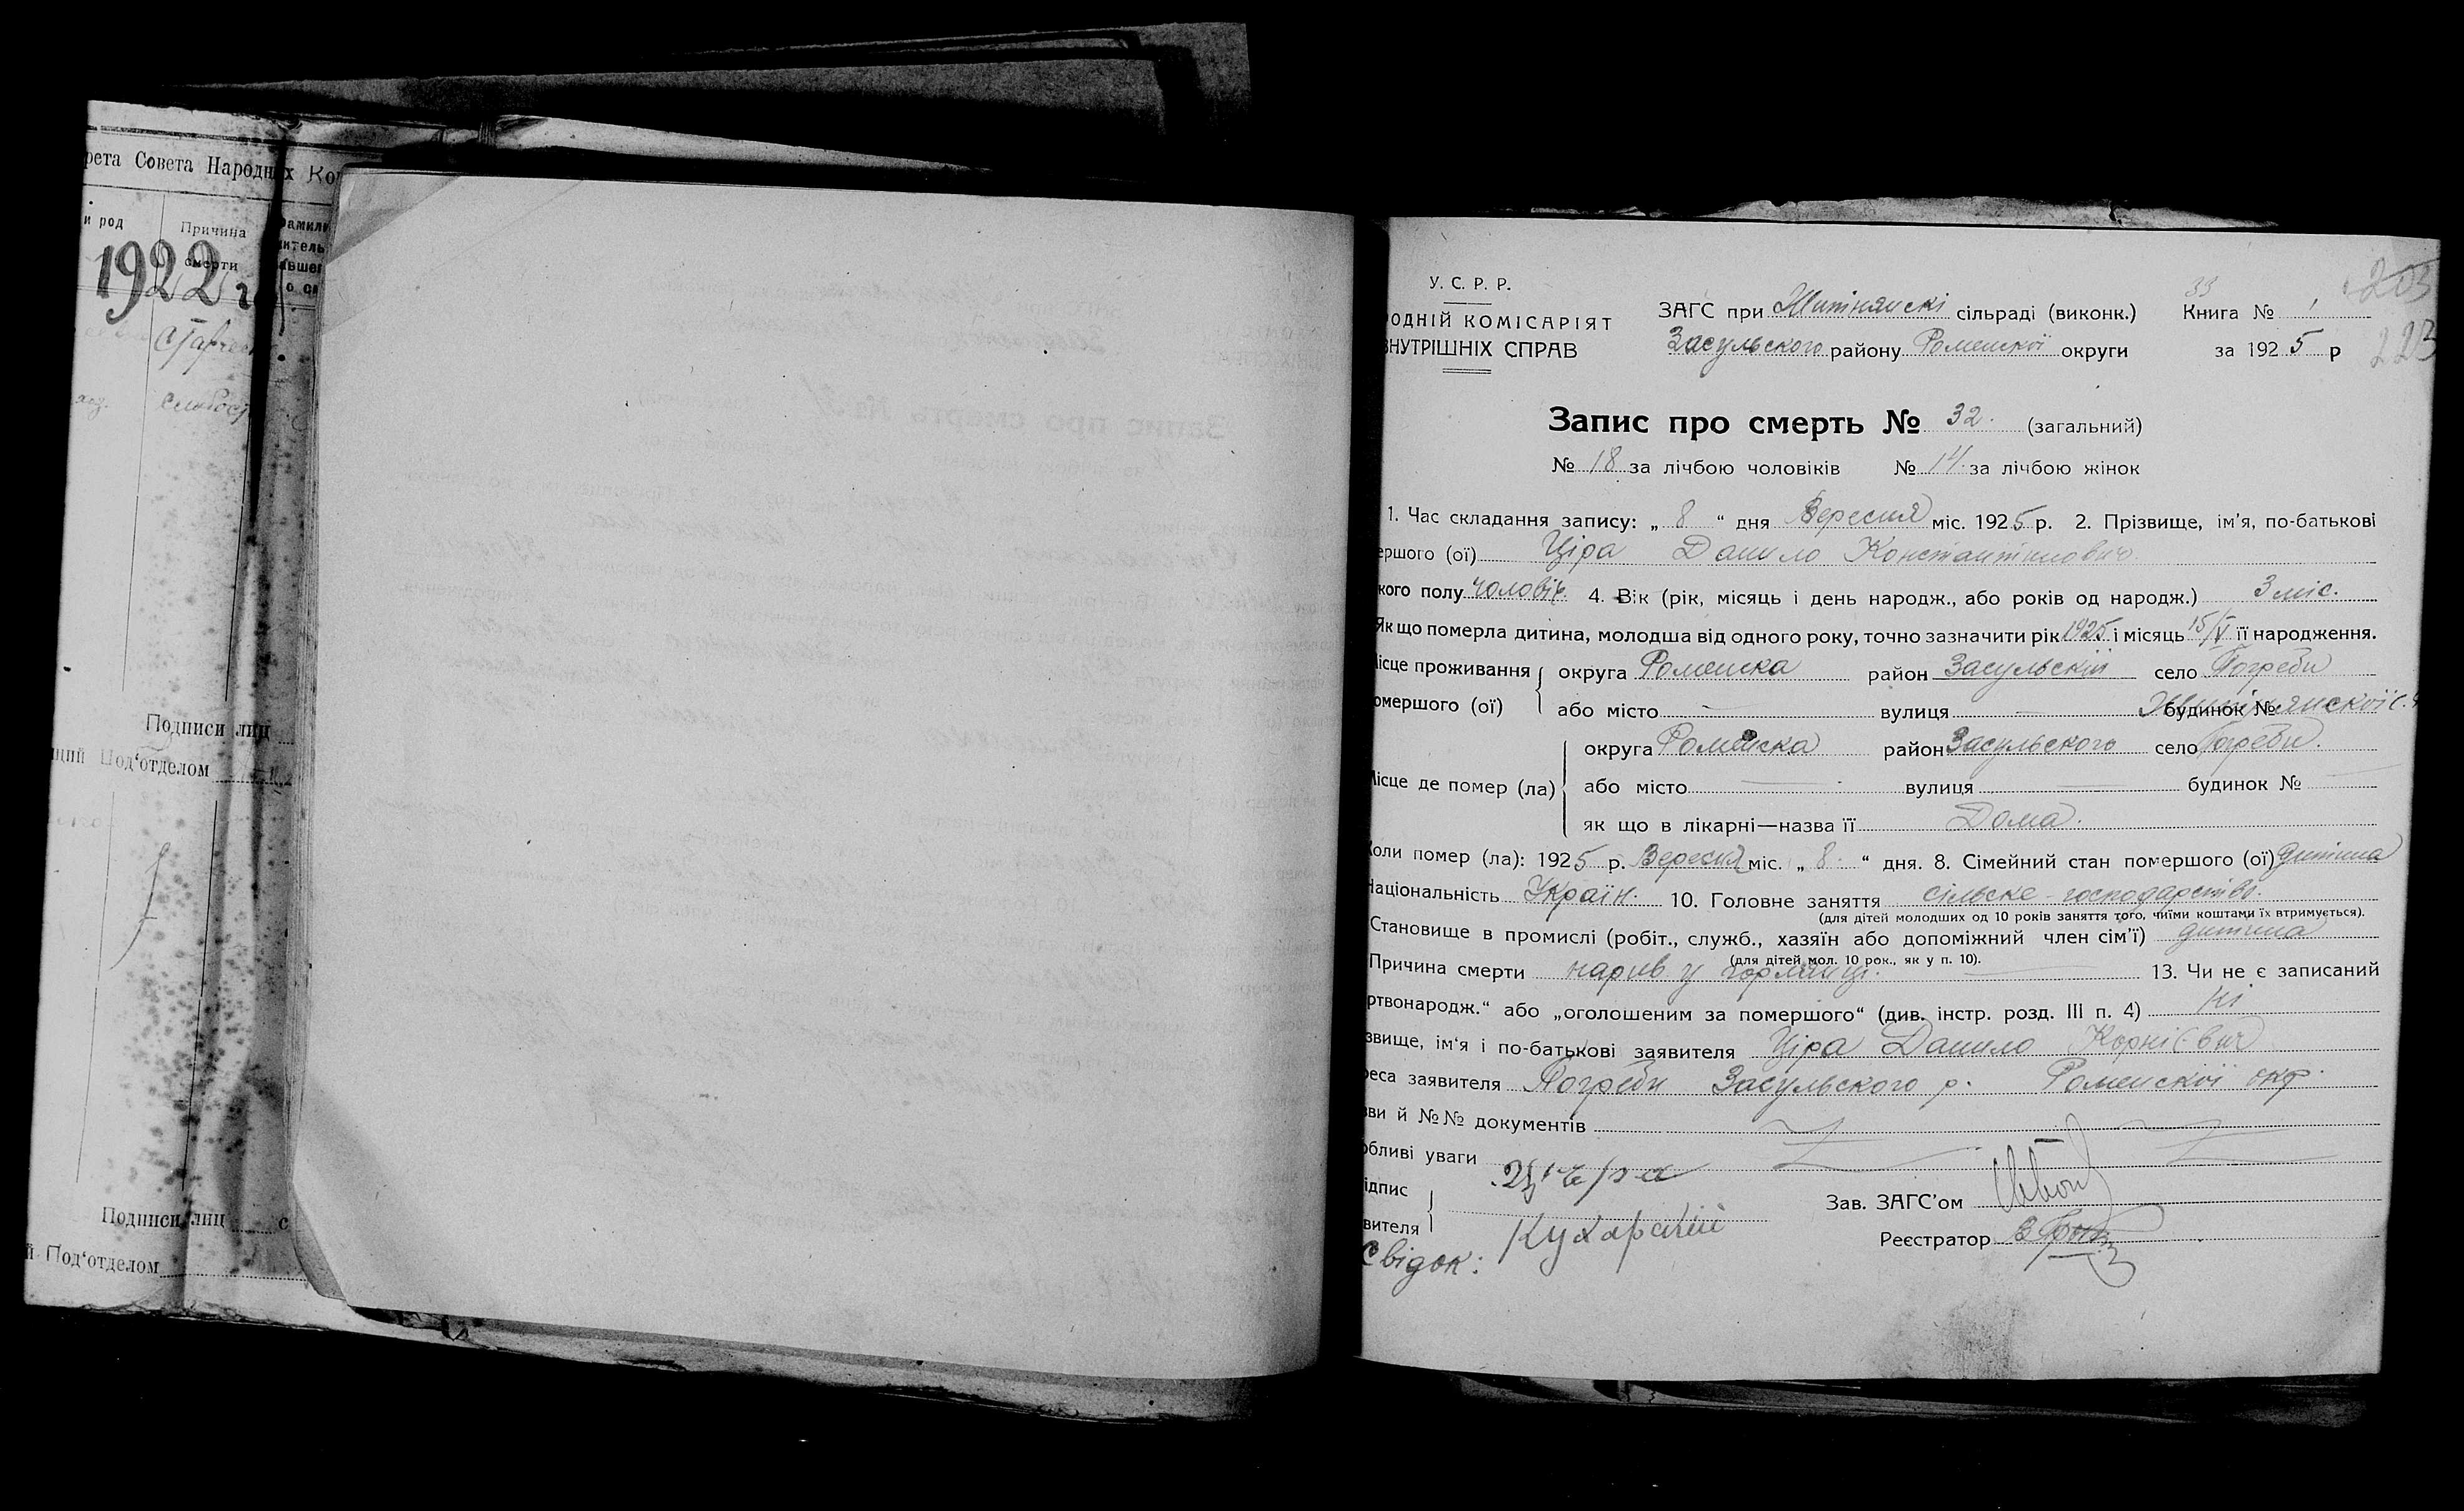 рета Совета Народных Ко
и род
Причина
смерти
1922 г.
Подписи лиц
ций Под‘отделом
Подписи лиц с
й Под‘отделом
У. С. Р. Р.
ОДНІЙ КОМІСАРІЯТ
ВНУТРІШНІХ СПРАВ
ЗАГС при Житнянскі сільраді (виконк.)
Засульского району Роменскої округи
33
Книга № 1
за 1925 р
203
223
Запис про смерть № 32. (загальний)
№ 18 за лічбою чоловіків № 14. за лічбою жінок
1. Час складання запису: „ 8 “ дня Вересня міс. 1925 р. 2. Прізвище, ім’я, по-батькові
ершого (ої) Ціра Данило Константинович.
кого полу чоловіч. 4. Вік (рік, місяць і день народж., або років од народж.) 3 міс.
Як що померла дитина, молодша від одного року, точно зазначити рік 1925 і місяць 15/V її народження.
ісце проживання
омершого (ої)
округа Роменска район Засульскій село Погреби
або місто — вулиця — будинок №
ісце де помер (ла)
округа Роменска район Засульского село Погреби.
або місто — вулиця — будинок № —
як що в лікарні—назва її Дома.
оли помер (ла): 1925 р. Вересня міс. „ 8. “ дня. 8. Сімейний стан помершого (ої) дитина
Національність Україн. 10. Головне заняття сільске-господарство.
(для дітей молодших од 10 років заняття того, чиїми коштами їх втримується).
Становище в промислі (робіт., служб., хазяїн або допоміжний член сім’ї) дитина
(для дітей мол. 10 рок., як у п. 10).
Причина смерти нарив у горлянці. — 13. Чи не є записаний
ртвонародж.“ або „оголошеним за помершого“ (див. інстр. розд. III п. 4) ні
звище, ім‘я і по-батькові заявителя Ціра Данило Корнієвич
реса заявителя Погреби Засульского р. Роменскої окр.
зви й №№ документів
обливі уваги
ідпис
вителя
Кухарский
Свідок:
Зав. ЗАГС’ом
Реєстратор